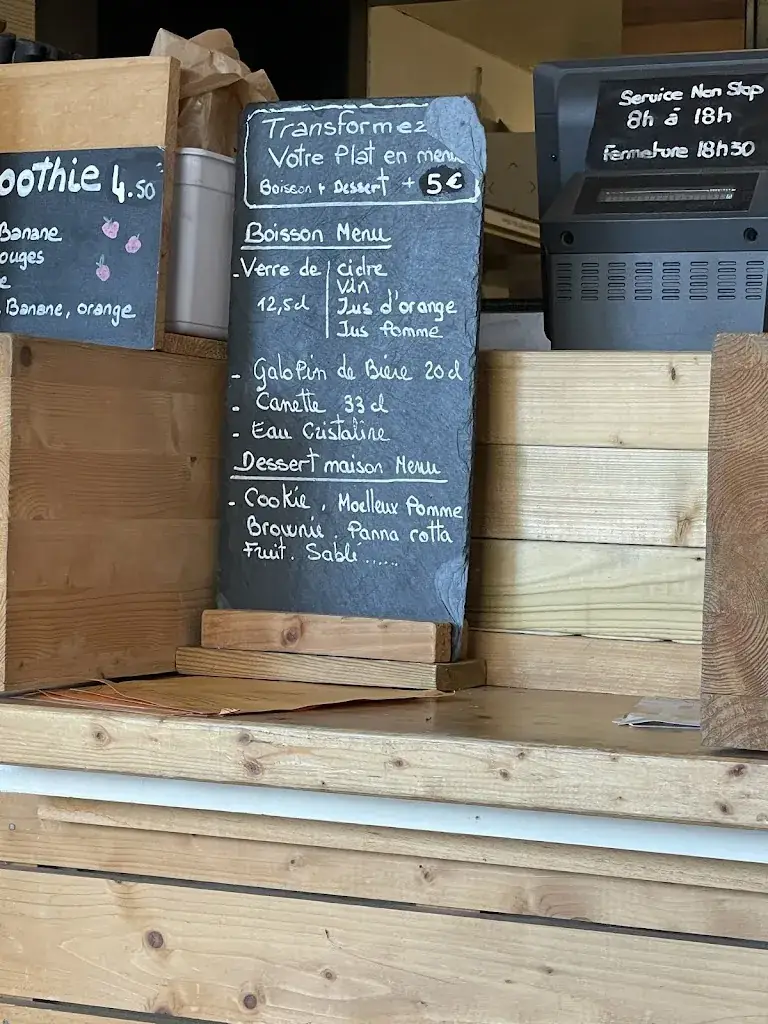 oothie 4.50
Banane
ouges
e
Banane, orange
Transformez
Votre Plat en menu
Boisson + Dessert + 5€
Boisson Menu
- Verre de
12,5cl
cidre
vin
Jus d'orange
Jus Pomme
- Galopin de Bière 20cl
- Canette 33cl
- Eau Cristaline
Dessert maison Menu
- Cookie, Moelleux Pomme
Brownie. Panna cotta
Fruit. Sablé......
Service Non Stop
8h à 18h
Fermeture 18h30